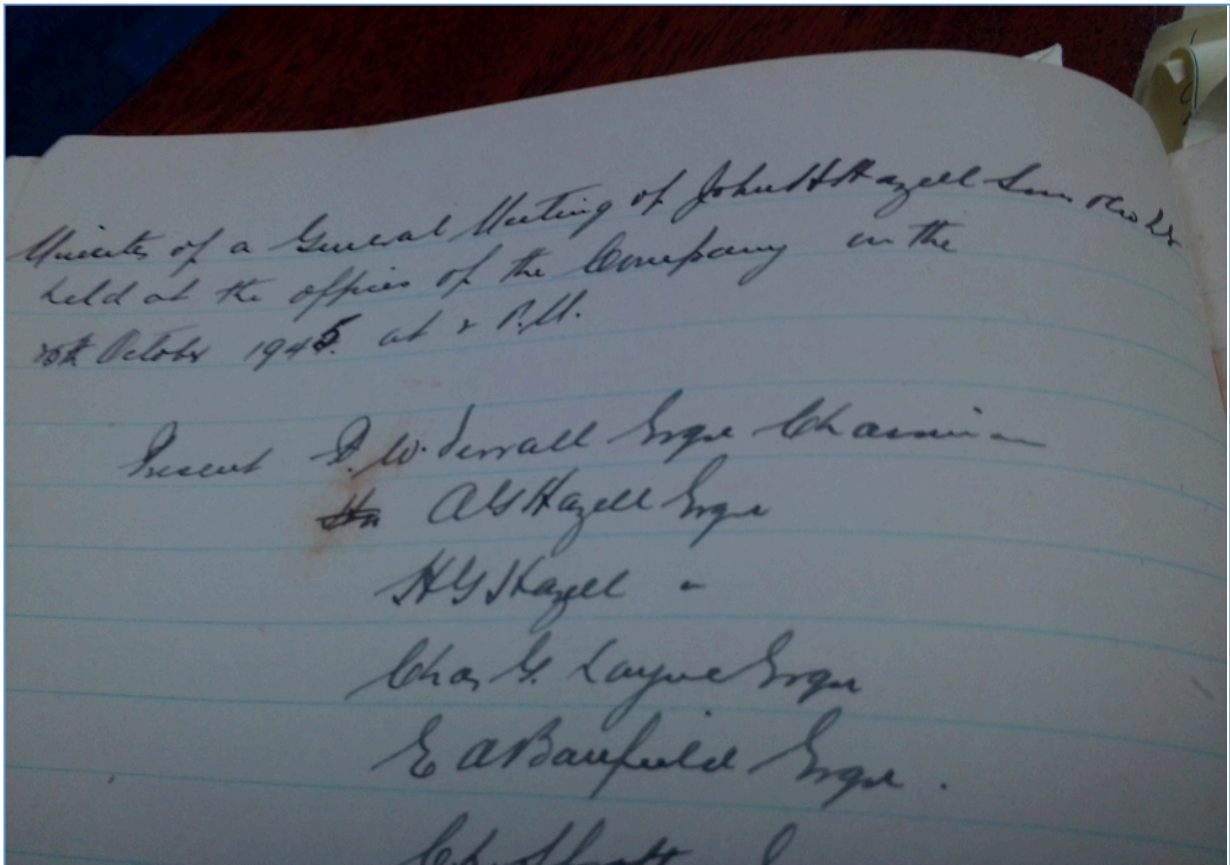 Minutes of a General Meeting of John H Hazell Sons & Co Ld
held at the offices of the Company on the
25th October 1945. at 2 P.M.
Present D. W. Verrall Esqre Chairman
A G Hazell Esqre
H G Hazell "
Chas G. Layne Esqre
E A Banfield Esqre.